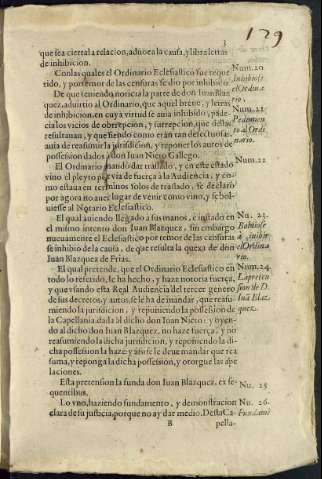 129
3
que sea cierta la relacion, adnoea la causa, y libra letras
de inhibicion.
Con las quales el Ordinario Eclesiastico fue reque
rido, y por temor de las censuras se dio por inhibido.
Num. 20
Inhibiose
el Ordina
rio.
De que teniendo noticia la parte de don Iuan Blaz
quez, aduirtio al Ordinario, que aquel breue, y letras
de inhibicion, en cuya virtud se auia inhibido, pade
cia los vicios de obrepcion, y surrepcion, que della
resultauan, y que siendo como eran tan defectuosas
auia de reasumir la jurisdicion, y reponer los autos de
possession dados a don Iuan Nieto Gallego.
Num. 21
Pedimento
al Ordi
nario.
El Ordinario mandò dar traslado, y en este estado
vino el pleyto por via de fuerça a la Audiencia, y co
mo estaua en terminos solos de traslado, se declarò
por agora no auer lugar de venir como vino, y se bol
uiesse al Notario Eclesiastico.
Num. 22
El qual auiendo llegado a sus manos, e instado en
el mismo intento don Iuan Blazquez, sin embargo
nueuamente el Eclesiastico por temor de las censuras
se inhibio de la causa, de que resulta la quexa de don
Iuan Blazquez de Frias.
Nu. 23
el Ordina
rio.
El qual pretende, que el Ordinario Eclesiastico en
todo lo referido, le ha hecho, y haze notoria fuerça,
y que viendo esta Real Audiencia del tercer genero
de sus decretos, y autos, se le ha de mandar, que reasu
miendo la jurisdicion, y reponiendo la possession de
la Capellania dada al dicho don Iuan Nieto, y oyen
do al dicho don Iuan Blazquez, no haze fuerça, y no
reasumiendo la dicha jurisdicion, y reponiendo la di
cha possession la haze y assi se le deue mandar que rea
suma, y reponga la dicha possession, y otorgue las ape
laciones.
Num. 24
La preten
sion de D.
Iuã Blaz
quez.
Esta pretension la funda don Iuan Blazquez, ex se
quentibus.
Nu. 25
Lo vno, haziendo fundamento, y demonstracion
clara de su justicia, porque no ay dar medio. Desta Ca
Nu. 26
Fundamẽ
B
pella-